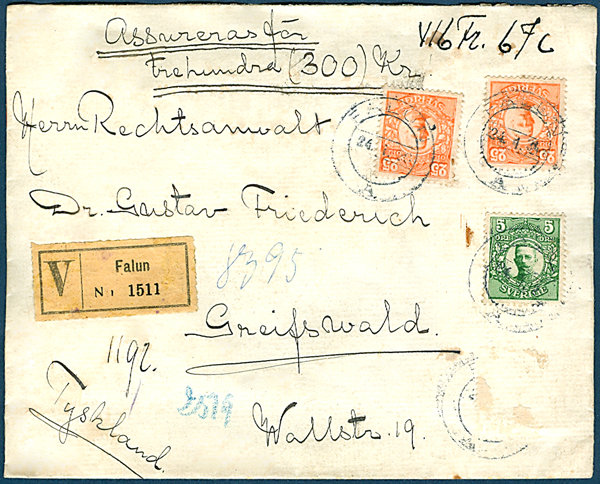 Assureras för
trehundra (300) Kr.
416 Fr. 67 c
Herrn Rechtsanwalt
Dr. Gustav Friederich
V
Falun
N:r 1511
8395
Greifswald.
119 gr.
2579
Tyskland.
Wallstr. 19.
SVERIGE
25
25
SVERIGE
25
25
24.1.
5
5
SVERIGE